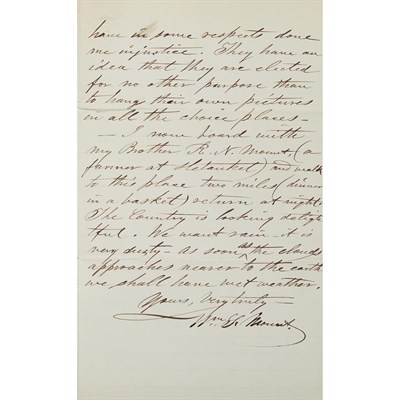 have in some respects done
me injustice. They have an
idea that they are elected
for no other purpose than
to hang their own pictures
in all the choice places -
- I now board with
my Brother R. N. Mount, (a
farmer at Setauket) and walk
to this place two miles (dinner
in a basket) return at night.
The Country is looking deligh
tful. We want rain - it is
very dusty - as soon as the clouds
approaches nearer to the earth
we shall have wet weather.
Yours, very truly -
Wm. S. Mount.